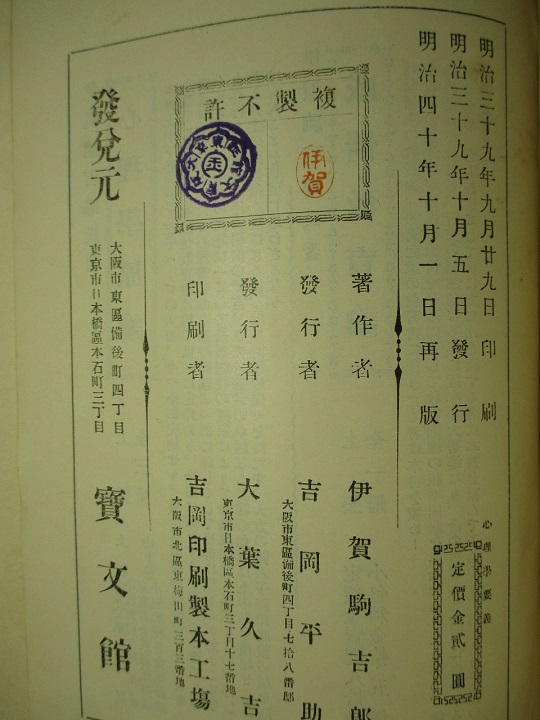 明治三十九年九月廿九日印刷
明治三十九年十月五日發行
明治四十年十月一日再版
心理學要義
定價金貳圓
複製不許
伊賀
著作者 伊賀駒吉郎
發行者 吉岡平助
大阪市東區備後町四丁目七拾八番邸
發行者 大葉久吉
東京市日本橋區本石町三丁目十七番地
印刷者 吉岡印刷製本工塲
大阪市北區東梅田町三百三番地
發兌元
大阪市東區備後町四丁目
東京市日本橋區本石町三丁目
寶文館